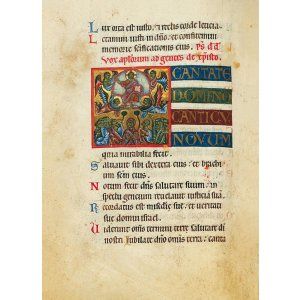 Lux orta est iusto, et rectis corde leticia.
Letamini iusti in dño, et confitemini
memorie scificationis eius. Ps d̃d
Vox aplorum ad gentes de xp̃isto
CANTATE
DOMINO
CANTICV
NOVUM
quia mirabilia fecit.
Saluauit sibi dextera eius: et brachi
um scm̃ eius.
Notum fecit dñs salutare suum: in
spectu gencium reuelauit iusticiã suã.
Recordatus est misc̃die sue: et ueritati
sue domui israel.
Uiderunt omnes termini terre salutare di
nostri Iubilate dño omnis terra: canta